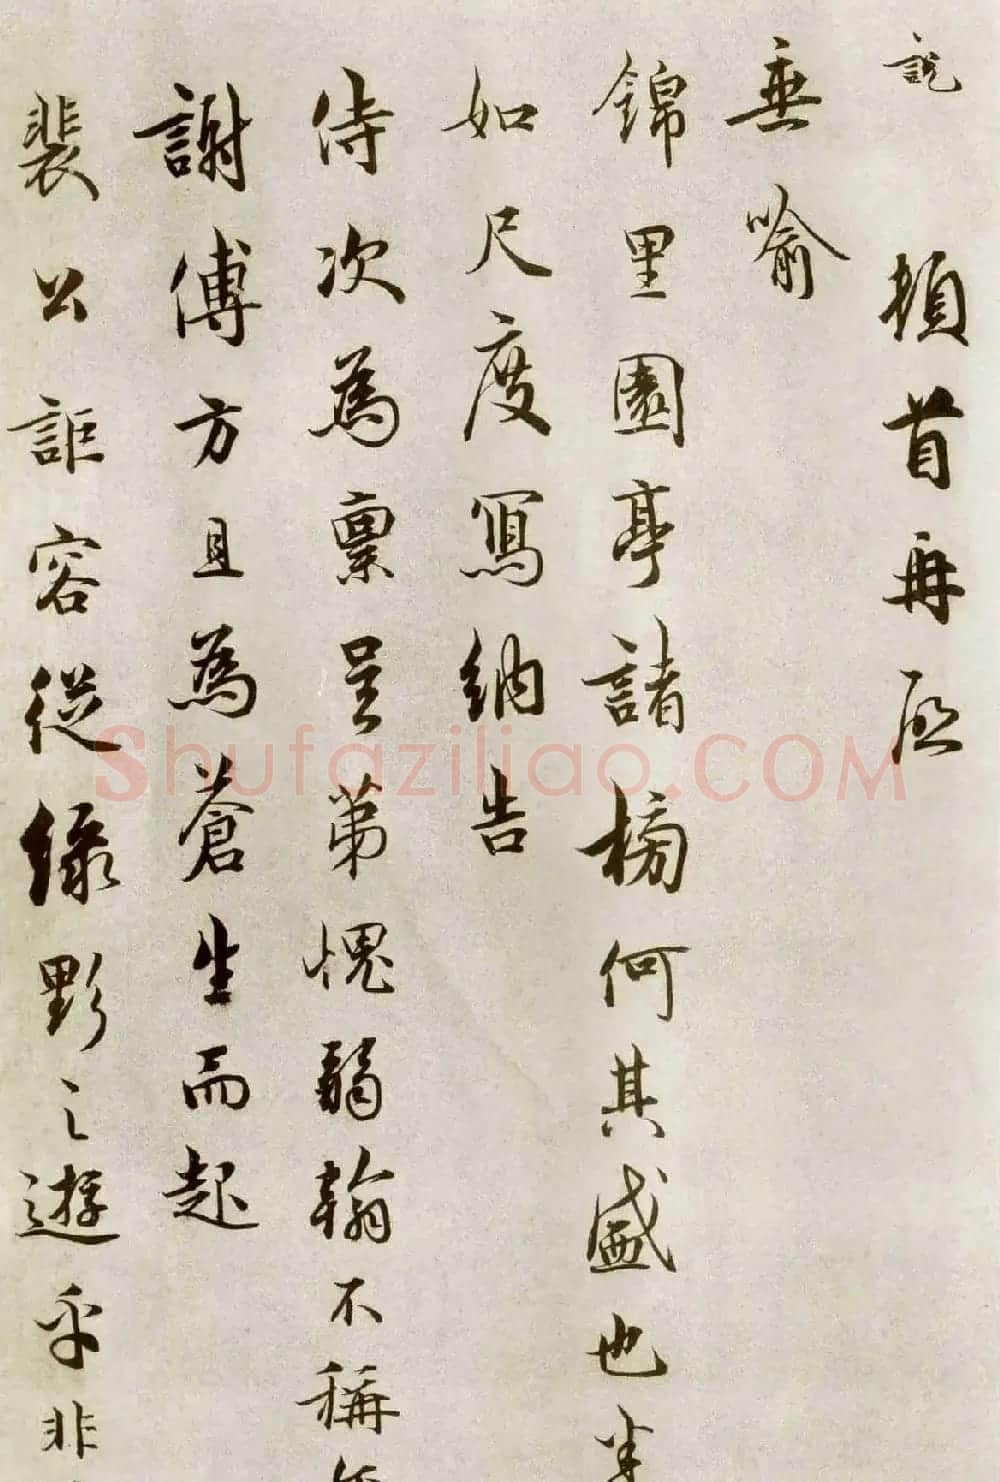 說頓首再啓
垂喻
錦里園亭諸榜何其盛也
如尺度寫納告
侍次為禀呈第愧弱翰不稱
謝傅方且為蒼生而起
裴公詎容從綠野之遊乎非
Shufaziliao.COM